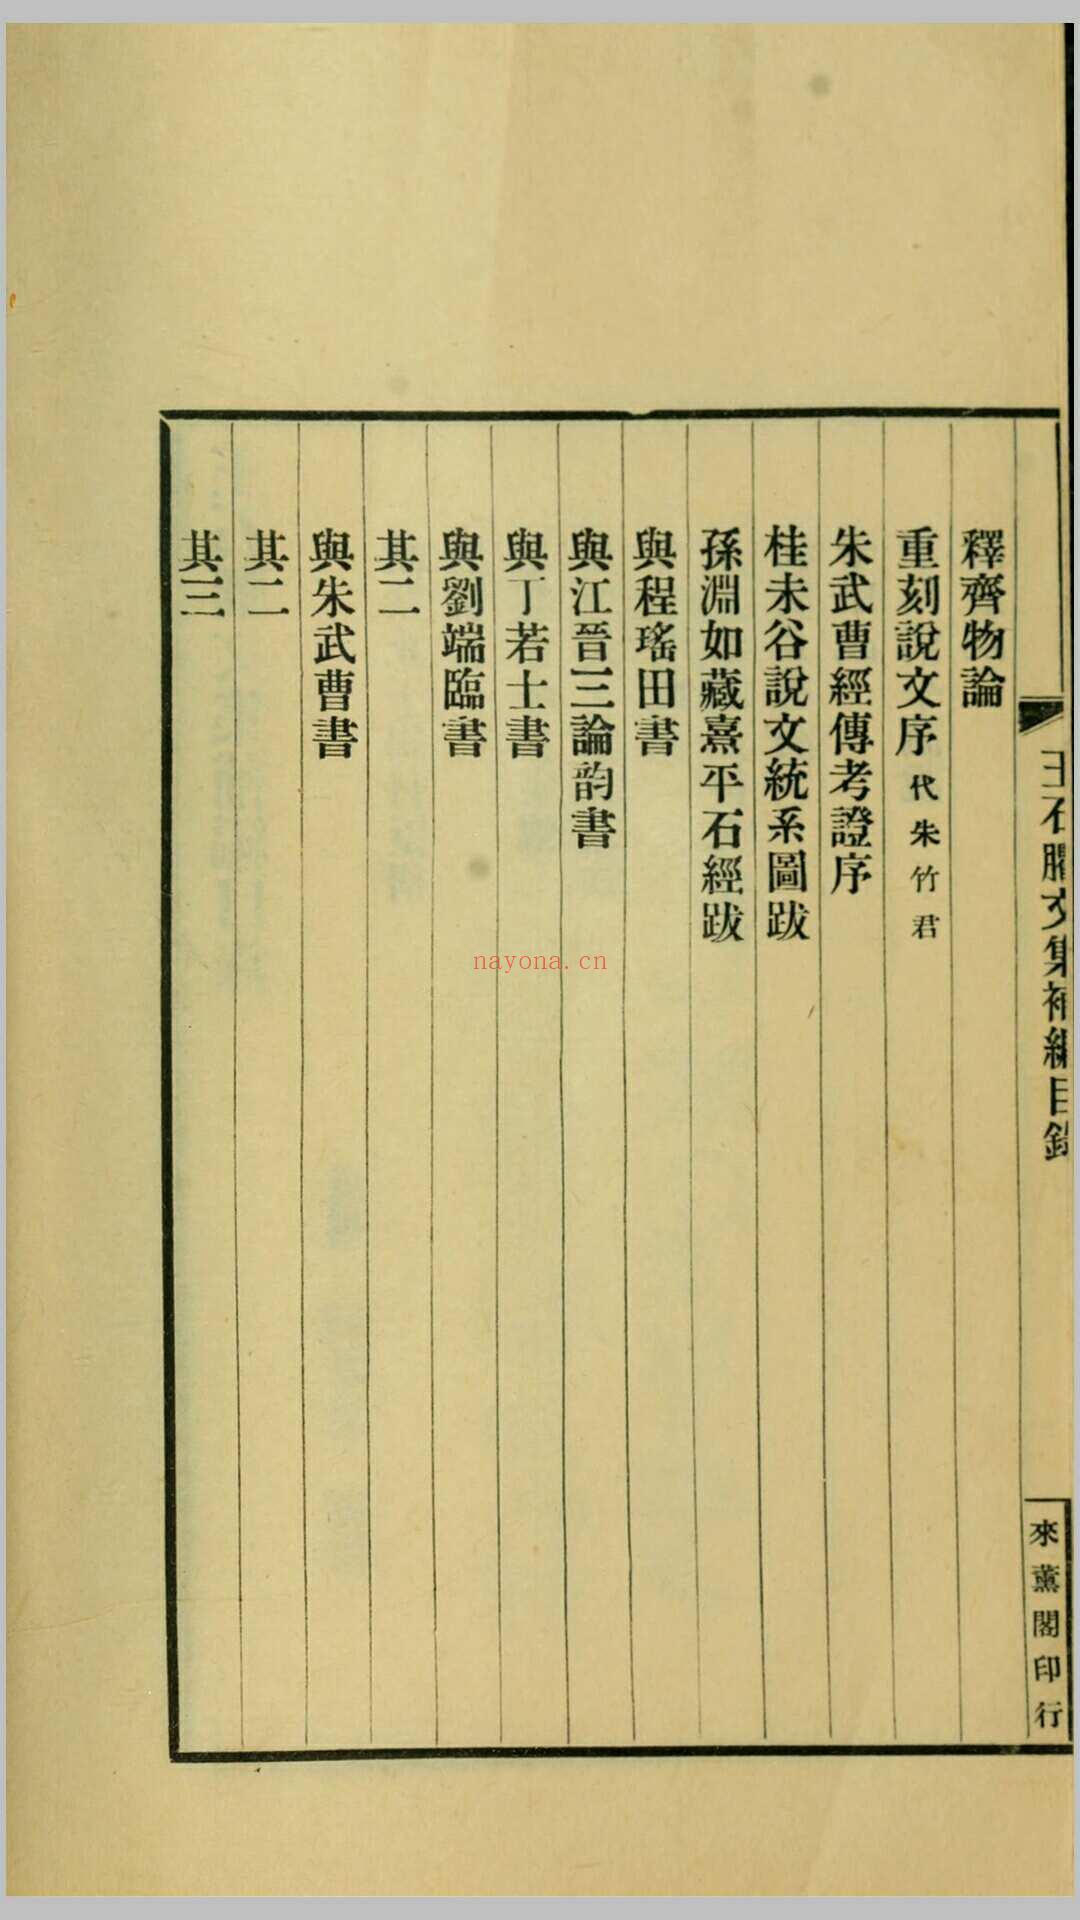 王石臞文集補編目錄
來薰閣印行
釋齊物論
重刻說文序代朱竹君
朱武曹經傳考證序
桂未谷說文統系圖跋
孫淵如藏熹平石經跋
與程瑤田書
與江晉三論韵書
與丁若士書
與劉端臨書
其二
與朱武曹書
其二
其三
nayona.cn